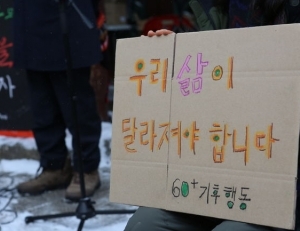 우리 삶이
달라져야 합니다
60+기후행동